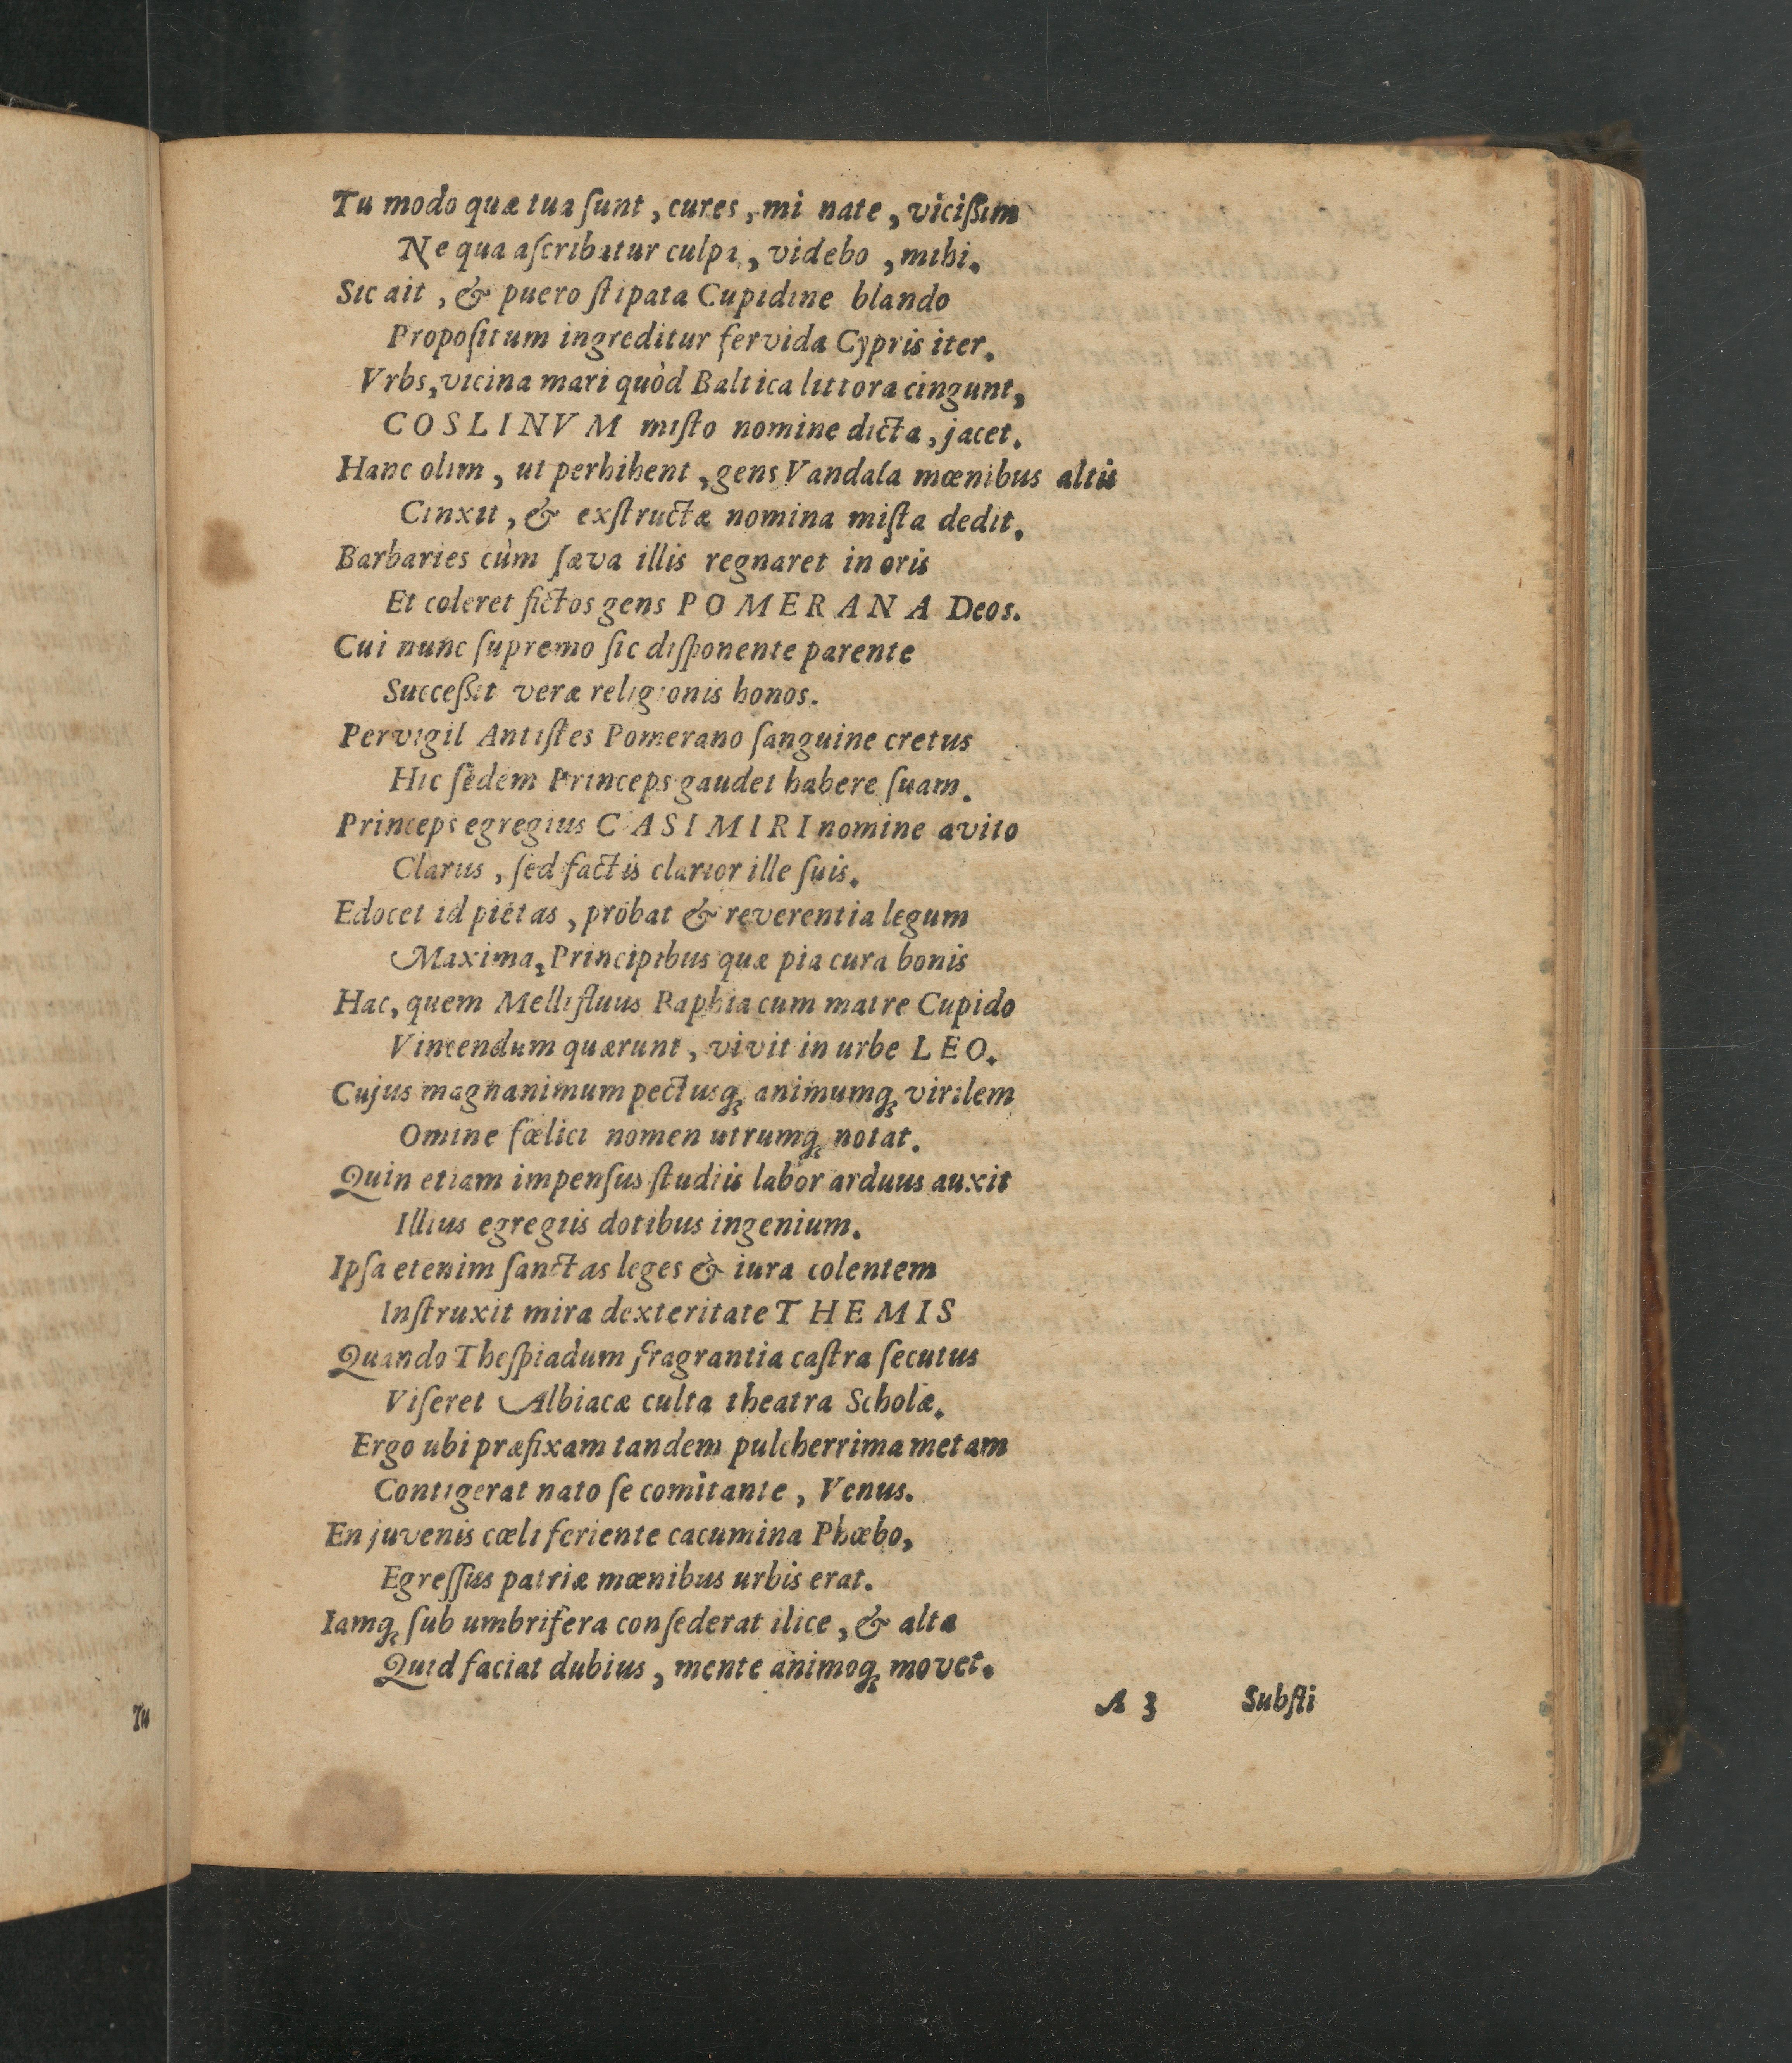 Tu modo quæ tua ſunt, cures, mi nate, viciſsim
Ne qua aſcribatur culpa, videbo, mihi.
Sic ait, & puero ſtipata Cupidine blando
Propoſitum ingreditur fervida Cypris iter.
Vrbs, vicina mari quòd Baltica littora cingunt,
COSLINVM miſto nomine dicta, jacet.
Hanc olim, ut perhibent, gens Vandala mœnibus altis
Cinxit, & exſtructæ nomina miſta dedit.
Barbaries cùm ſæva illis regnaret in oris
Et coleret fictos gens POMERANA Deos.
Cui nunc ſupremo ſic diſponente parente
Succeſsit veræ religionis honos.
Pervigil Antiſtes Pomerano ſanguine cretus
Hic ſedem Princeps gaudet habere ſuam.
Princeps egregius CASIMIRI nomine avito
Clarus, ſed factis clarior ille ſuis.
Edocet id pietas, probat & reverentia legum
Maxima, Principibus quæ pia cura bonis
Hac, quem Mellifluus Paphia cum matre Cupido
Vincendum quærunt, vivit in urbe LEO.
Cujus magnanimum pectusq; animumq; virilem
Omine fœlici nomen utrumq; notat.
Quin etiam impenſus ſtudiis labor arduus auxit
Illius egregiis dotibus ingenium.
Ipſa etenim ſanctas leges & iura colentem
Inſtruxit mira dexteritate THEMIS
Quando Theſpiadum fragrantia caſtra ſecutus
Viſeret Albiacæ culta theatra Scholæ.
Ergo ubi præfixam tandem pulcherrima metam
Contigerat nato ſe comitante, Venus.
En juvenis cœli feriente cacumina Phœbo,
Egreſſus patriæ mœnibus urbis erat.
Iamq; ſub umbrifera conſederat ilice, & alta
Quid faciat dubius, mente animoq; movet.
A 3 Subſti
Tu